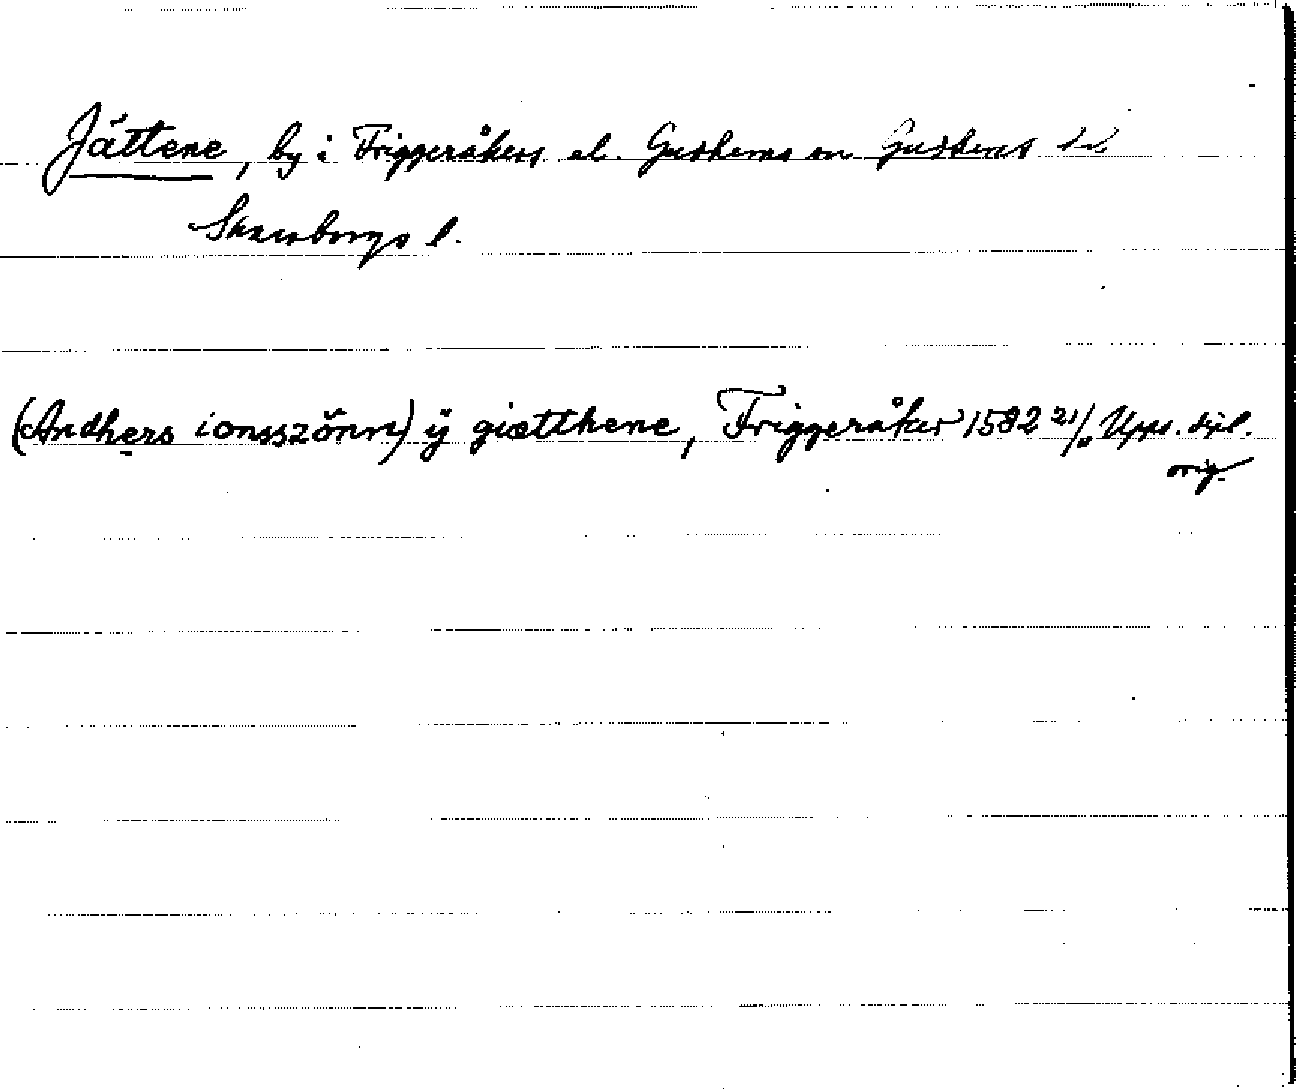 Jättene, by i Friggeråkers el. Gudhems sn Gudhems hd
Skaraborgs l.
(Andhers ionsszönn) ÿ giætthene, Friggeråker 1582 21/10 Upps. dipl.
orig.